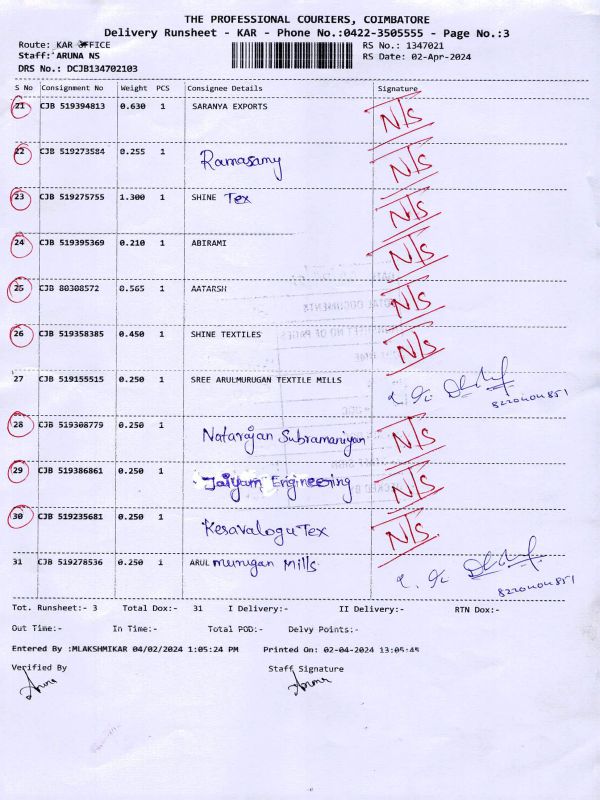 THE PROFESSIONAL COURIERS, COIMBATORE
Delivery Runsheet - KAR - Phone No.:0422-3505555 - Page No.:3
Route: KAR OFFICE RS No.: 1347021
Staff: ARUNA NS RS Date: 02-Apr-2024
DRS No.: DCJB134702103
S No Consignment No Weight PCS Consignee Details Signature
21 CJB 519394813 0.630 1 SARANYA EXPORTS N/S
22 CJB 519273584 0.255 1 Ramasamy N/S
23 CJB 519275755 1.300 1 SHINE Tex N/S
24 CJB 519395369 0.210 1 ABIRAMI N/S
25 CJB 80308572 0.565 1 AATARSH N/S
26 CJB 519358385 0.450 1 SHINE TEXTILES N/S
27 CJB 519155515 0.250 1 SREE ARULMURUGAN TEXTILE MILLS
28 CJB 519308779 0.250 1 Natarajan Subramaniyan N/S
29 CJB 519386861 0.250 1 Jaiyam Engineering N/S
30 CJB 519235681 0.250 1 Kesavalogu Tex N/S
31 CJB 519278536 0.250 1 ARUL murugan Mills
Tot. Runsheet:- 3 Total Dox:- 31 I Delivery:- II Delivery:- RTN Dox:-
Out Time:- In Time:- Total POD:- Delvy Points:-
Entered By :MLAKSHMIKAR 04/02/2024 1:05:24 PM Printed On: 02-04-2024 13:05:45
Verified By Staff Signature